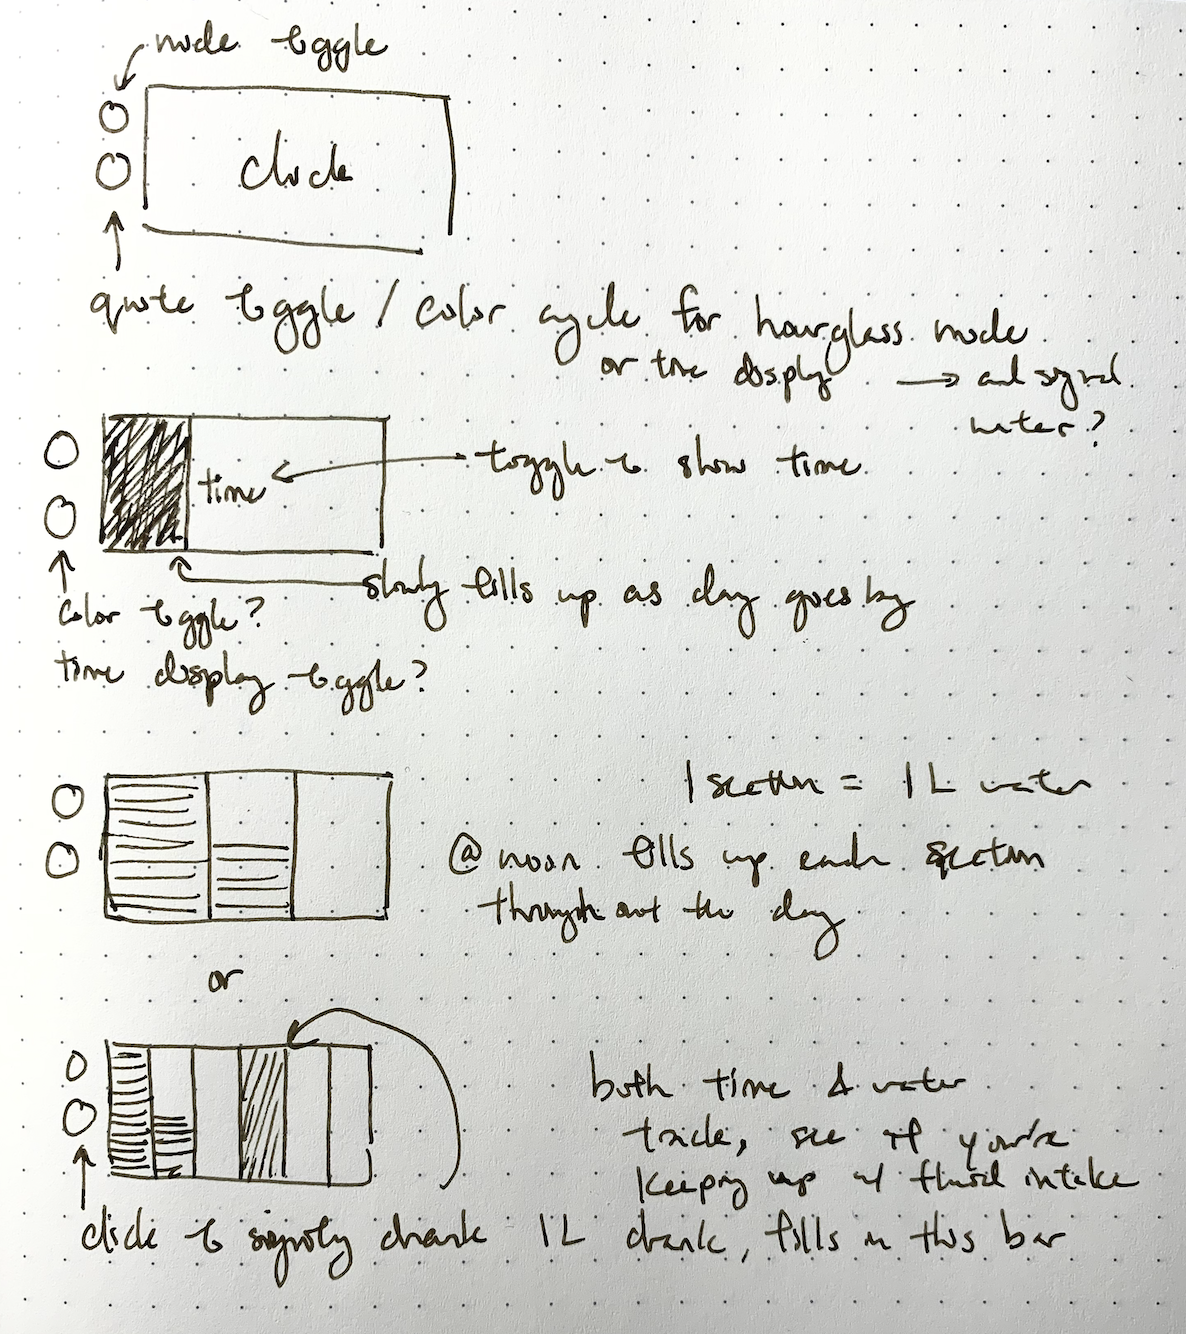 mode toggle
clock
quote toggle / color cycle for hourglass mode
or time display → and signal
water?
time
toggle to show time
slowly fills up as day goes by
color toggle?
time display toggle?
1 section = 1 L water
@ noon fills up each section
throughout the day
or
both time & water
track, see if you're
keeping up w/ fluid intake
click to signify drank 1L drank, fills in this bar